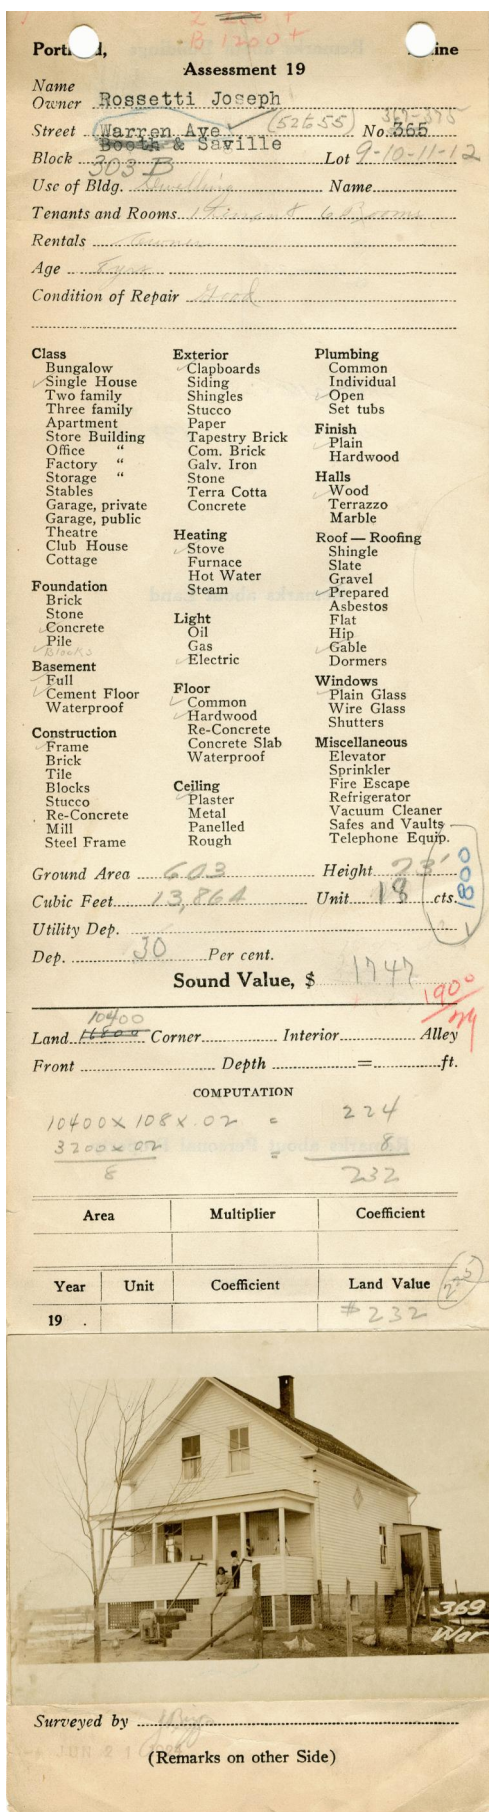 B 1200+
Portland, Maine
Assessment 19
Name
Owner Rossetti Joseph
(52 to 55) 367-375
Street Warren Ave. No. 365
Booth & Saville
Block 303-B Lot 9-10-11-12
Use of Bldg. Dwelling Name
Tenants and Rooms 1 Tenant 6 Rooms
Rentals Owner
Age 8 yrs
Condition of Repair Good
Class
Bungalow
Single House
Two family
Three family
Apartment
Store Building
Office "
Factory "
Storage "
Stables
Garage, private
Garage, public
Theatre
Club House
Cottage
Foundation
Brick
Stone
Concrete
Pile
Blocks
Basement
Full
Cement Floor
Waterproof
Construction
Frame
Brick
Tile
Blocks
Stucco
Re-Concrete
Mill
Steel Frame
Exterior
Clapboards
Siding
Shingles
Stucco
Paper
Tapestry Brick
Com. Brick
Galv. Iron
Stone
Terra Cotta
Concrete
Heating
Stove
Furnace
Hot Water
Steam
Light
Oil
Gas
Electric
Floor
Common
Hardwood
Re-Concrete
Concrete Slab
Waterproof
Ceiling
Plaster
Metal
Panelled
Rough
Plumbing
Common
Individual
Open
Set tubs
Finish
Plain
Hardwood
Halls
Wood
Terrazzo
Marble
Roof — Roofing
Shingle
Slate
Gravel
Prepared
Asbestos
Flat
Hip
Gable
Dormers
Windows
Plain Glass
Wire Glass
Shutters
Miscellaneous
Elevator
Sprinkler
Fire Escape
Refrigerator
Vacuum Cleaner
Safes and Vaults
Telephone Equip.
Ground Area 603 Height 23'
Cubic Feet 13,864 Unit 18 cts.
1800
Utility Dep.
Dep. 30 Per cent.
Sound Value, $ 1747
1900
10400
Land 16800 Corner Interior Alley
Front Depth = ft.
COMPUTATION
10400 x 108 x .02 = 224
3200 x 02 = 8
8 232
Area Multiplier Coefficient
Year Unit Coefficient Land Value
19 . $232
369
War
Surveyed by
JUN 21
(Remarks on other Side)